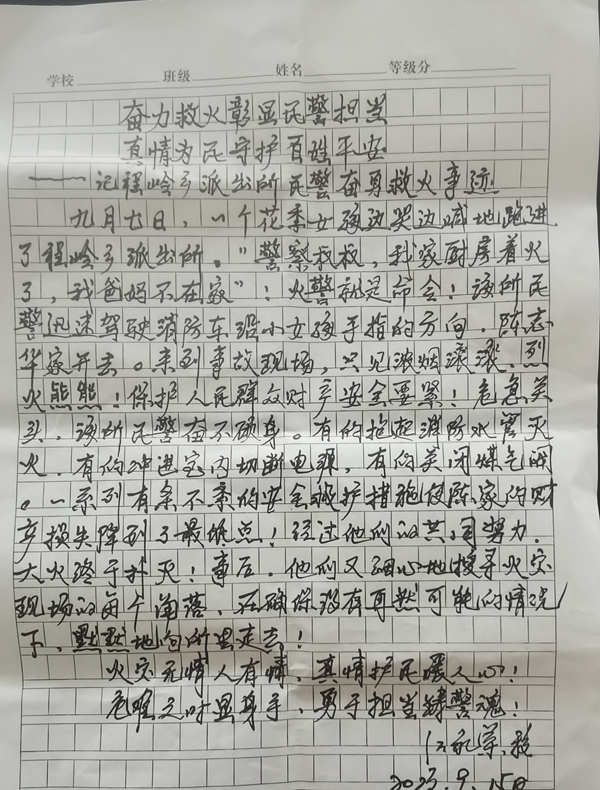 学校 班级 姓名 等级分
奋力救火彰显民警担当
真情为民守护百姓平安
——记程岭乡派出所民警奋勇救火事迹
九月七日，一个花季女孩边哭边喊地跑进
了程岭乡派出所。"警察叔叔，我家厨房着火
了，我爸妈不在家"！火警就是命令！该所民
警迅速驾驶消防车沿小女孩手指的方向，陈志
华家开去。来到事故现场，只见浓烟滚滚，烈
火熊熊！保护人民群众财产安全要紧！危急关
头，该所民警奋不顾身。有的抱起消防水管灭
火，有的冲进室内切断电源，有的关闭煤气阀
。一系列有条不紊的安全救护措施使陈家的财
产损失降到了最低点！经过他们的共同努力，
大火终于扑灭！事后，他们又细心地搜寻火灾
现场的每个角落，在确保没有再燃可能的情况
下，默默地向所里走去！
火灾无情人有情，真情护民暖人心！
危难之时显身手，勇于担当铸警魂！
2023.9.15日